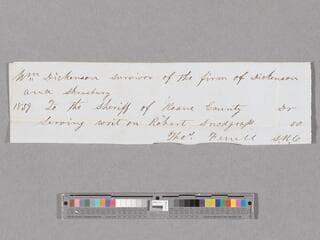 Wm Dickenson survivor of the firm of Dickenson
and Shrewsbury
1859 To the Sheriff of Roane County Dr
Serving writ on Robert Snodgrass 50
Thos. Ferrell S.R.C